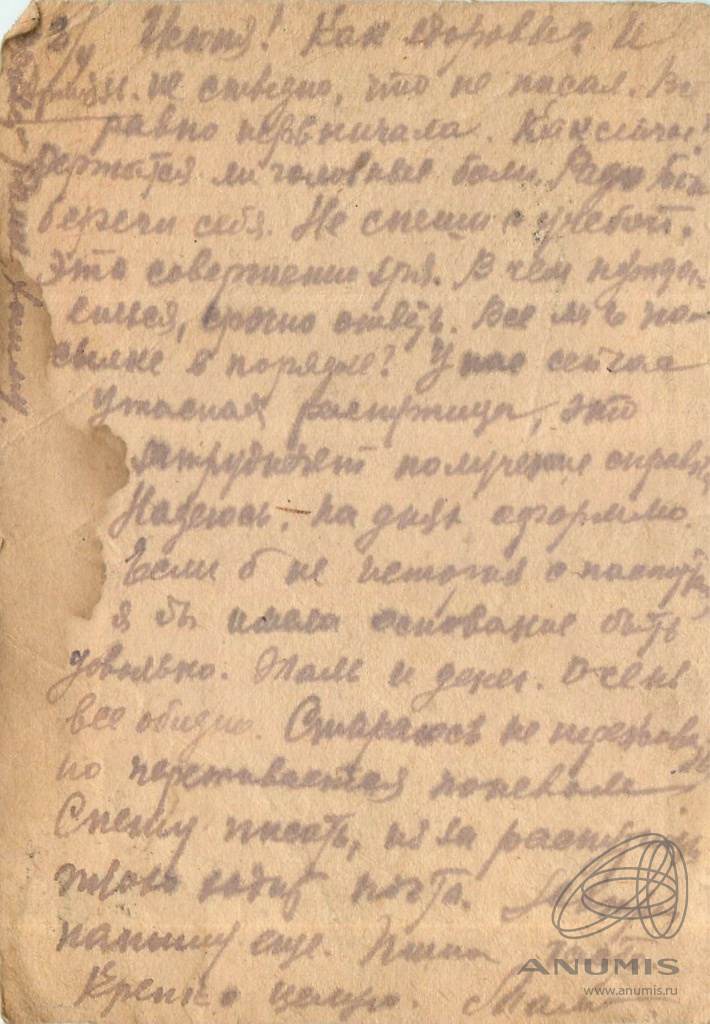 2/4 Как здоровье и
не стыдно, что не писал. Все
равно нервничала. Как сейчас?
Держатся ли головные боли. Ради бога
береги себя. Не спеши с учебой.
Это совершенно зря. В чем нужда-
ешься, срочно ответь. Все ли в по-
сылке в порядке? У нас сейчас
ужасная распутица, это
затрудняет получение справки
Надеюсь, на днях оформлю.
Если б не история с
я бы имела основание быть
довольно. Жаль и денег. Очень
все обидно. Стараюсь не переживать
но переживается поневоле
Спешу писать, из за распутицы
ходит почта.
напишу еще. Пиши
Крепко целую. Мама
ANUMIS
www.anumis.ru